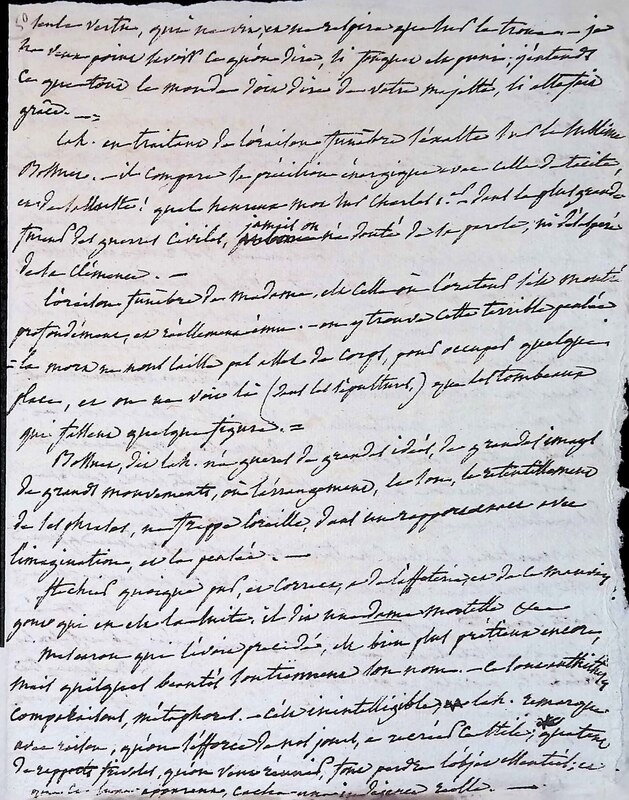 seule vertu, qui ne vive, et ne respire que sur le trone. — je
ne veux point savoir ce qu'on dira, si fouquet est puni. j'entends
ce que tout le monde doit dire de votre majesté, si elle fait
grace. —
lah. en traitant de l'oraison funebre s'exalte sur le sublime
Bossuet. — il compare sa précision énergique avec celle de tacite
et de salluste! quel heureux mot sur Charles 1er dans la plus grande
fureur des guerres civiles, jamais on n'a douté de sa parole, ni désespéré
de sa clémence. —
l'oraison funèbre de madame, est celle où l'orateur s'est montré
profondément, et réellement ému. — on y trouve cette terrible pensée
= la mort ne nous laisse pas assez de corps, pour occuper quelque
place, et on ne voit là (dans les sépultures,) que les tombeaux
qui fassent quelque figure. =
Bossuet, dit lah. n'a guères de grandes idées, de grandes images
de grands mouvements, où l'arrangement, le son, le retentissement
de ses phrases, ne frappe l'oreille, dans un rapport avec
l'imagination, et la pensée. —
fléchier quoique pur, et correct, a de l'afféterie, et de ce mauvais
gout qui en est la suite, il dit une dame mortelle
mascaron que l'avait précédé, est bien plus précieux encore,
mais quelques beautés soutiennent son nom. — ce sont antithèses
comparaisons, métaphores. — cela inintelligible lah. remarque
avec raison, qu'on s'efforce de nos jours, a recréer ce stile,
de rapports frivoles, qu'on veut réunir, font perdre l'objet essentiel; et
apparente, cache une indigence réelle. —